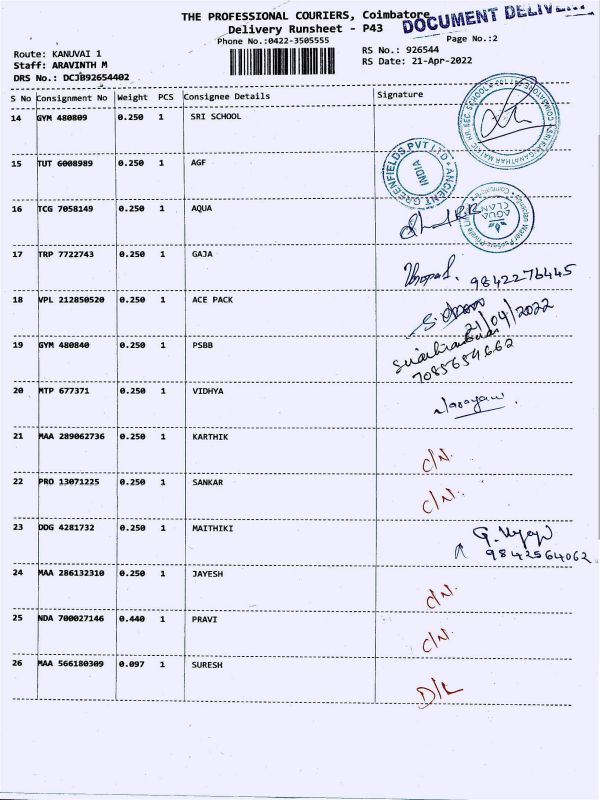 THE PROFESSIONAL COURIERS, Coimbatore
DOCUMENT DELIVERY
Delivery Runsheet - P43
Phone No.:0422-3505555
Page No.:2
Route: KANUVAI 1
RS No.: 926544
Staff: ARAVINTH M
RS Date: 21-Apr-2022
DRS No.: DCJB92654402
S No Consignment No Weight PCS Consignee Details Signature
14 GYM 480809 0.250 1 SRI SCHOOL
15 TUT 6008989 0.250 1 AGF
ANCIENT GREENFIELDS PVT LTD
INDIA
16 TCG 7058149 0.250 1 AQUA
AQUA CLAN
17 TRP 7722743 0.250 1 GAJA
9842276445
18 VPL 212850520 0.250 1 ACE PACK
21/04/2022
19 GYM 480840 0.250 1 PSBB
7085654662
20 MTP 677371 0.250 1 VIDHYA
Narayan
21 MAA 289062736 0.250 1 KARTHIK
C/N.
22 PRO 13071225 0.250 1 SANKAR
C/N.
23 DDG 4281732 0.250 1 MAITHIKI
9842564062
24 MAA 286132310 0.250 1 JAYESH
C/N.
25 NDA 700027146 0.440 1 PRAVI
C/N.
26 MAA 566180309 0.097 1 SURESH
D/L